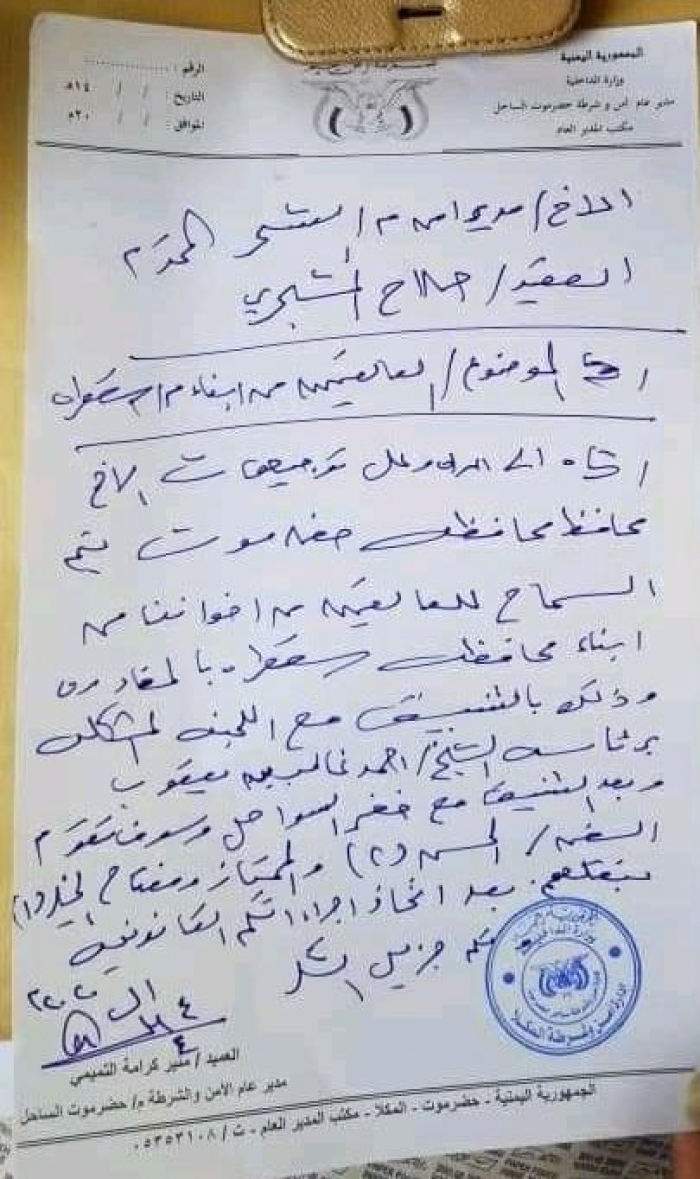 الجمهورية اليمنية
وزارة الداخلية
مدير عام أمن و شرطة حضرموت الساحل
مكتب المدير العام
الرقم : ..............
التاريخ : / / ١٤هـ
الموافق : / / ٢٠م
الاخ / مدير امن م الشحر المحترم
العقيد / صلاح المشجري
الموضوع / العالقين من ابناء م / سقطرى
توجيهات الاخ
محافظ محافظة حضرموت يتم
السماح للعالقين من اخواننا من
ابناء محافظة سقطرى بالمغادرة
وذلك بالتنسيق مع اللجنة المشكلة
برئاسة الشيخ / احمد غالب يعقوب
وبعد التنسيق مع خفر السواحل وسوف تقوم
السفن / الحسن (٢) والممتاز ومفتاح الخير (١)
بنقلهم بعد اتخاذ اجراءاتكم القانونية
ولكم جزيل الشكر
٤
٤
٢٠٢٠
العميد / منير كرامة التميمي
مدير عام الأمن والشرطة م/ حضرموت الساحل
الجمهورية اليمنية - حضرموت - المكلا - مكتب المدير العام - ت / ٠٥٣٥٣١٠٨
وزارة الداخلية